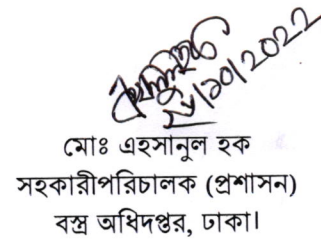 ২৮/১০/2022
মোঃ এহসানুল হক
সহকারীপরিচালক (প্রশাসন)
বস্ত্র অধিদপ্তর, ঢাকা।